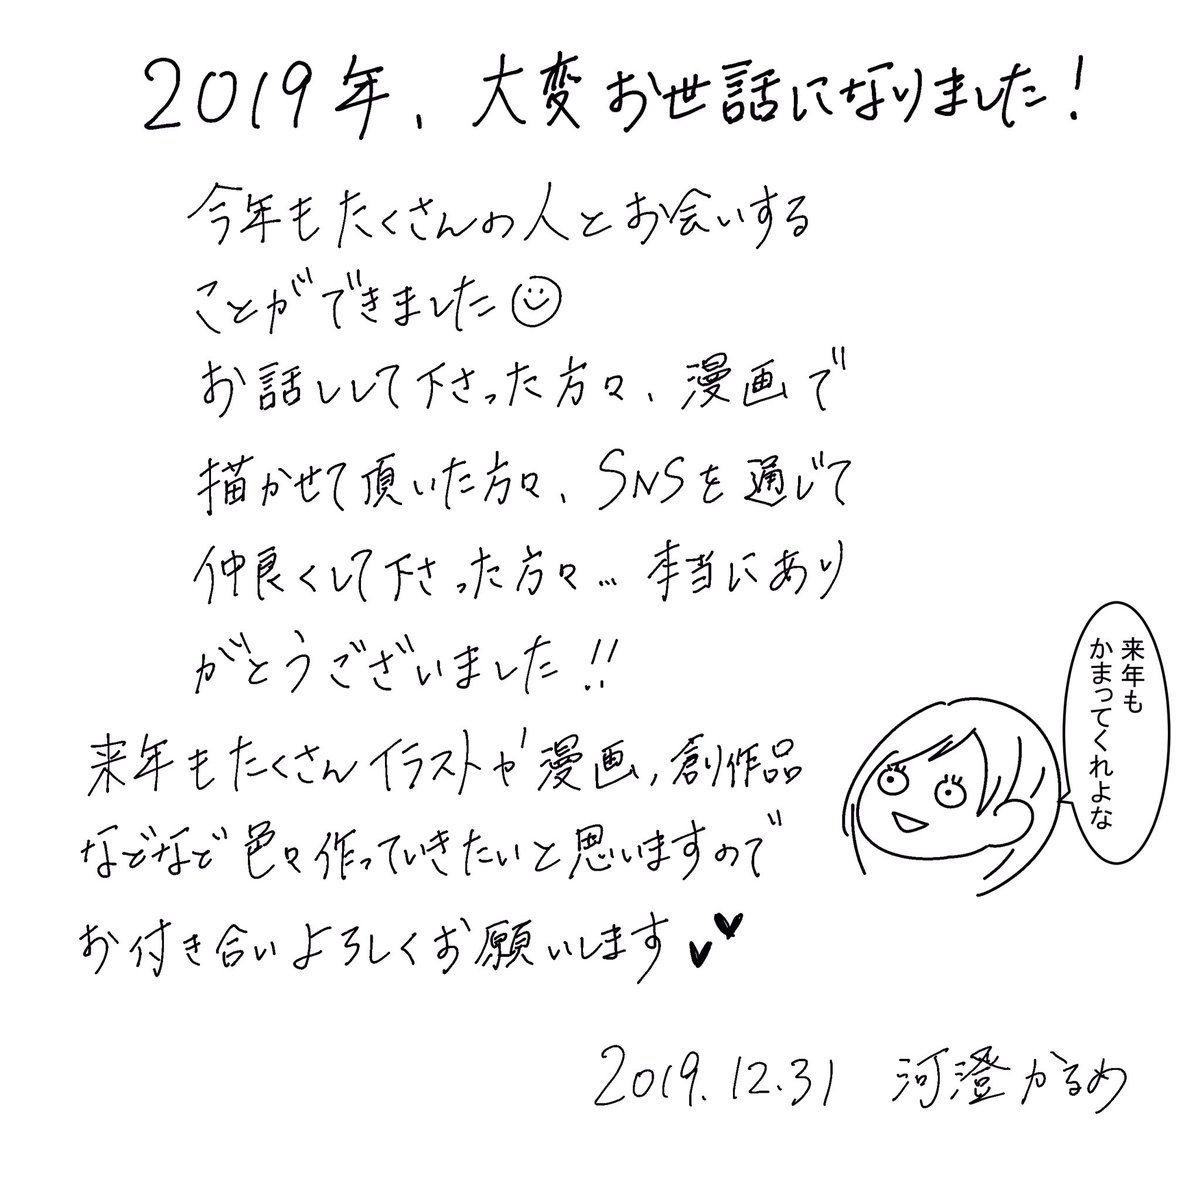 2019年、大変お世話になりました!
今年もたくさんの人とお会いする
ことができました
お話しして下さった方々、漫画で
描かせて頂いた方々、SNSを通じて
仲良くして下さった方々… 本当にあり
がとうございました!!
来年もたくさんイラストや漫画、創作品
などなど色々作っていきたいと思いますので
お付き合いよろしくお願いします
来年も
かまってくれよな
2019.12.31 河澄かるめ